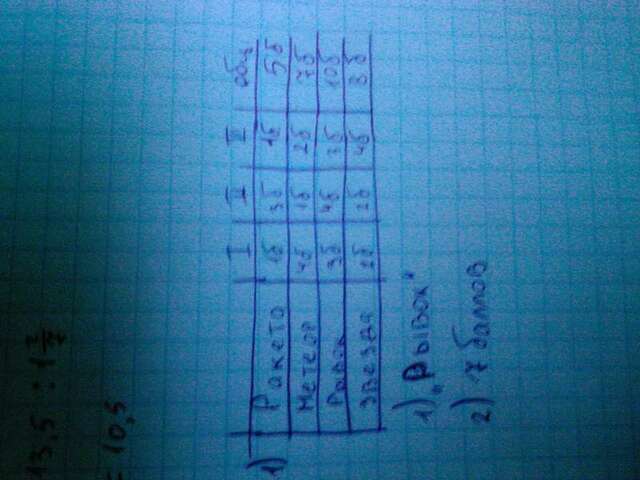 13,5 : 1 2/7
= 10,5
1)
I II III общ
Ракета 1б 3б 1б 5б
Метеор 4б 1б 2б 7б
Рывок 3б 4б 3б 10б
Звезда 2б 2б 4б 8б
1) „Рывок"
2) 7 баллов